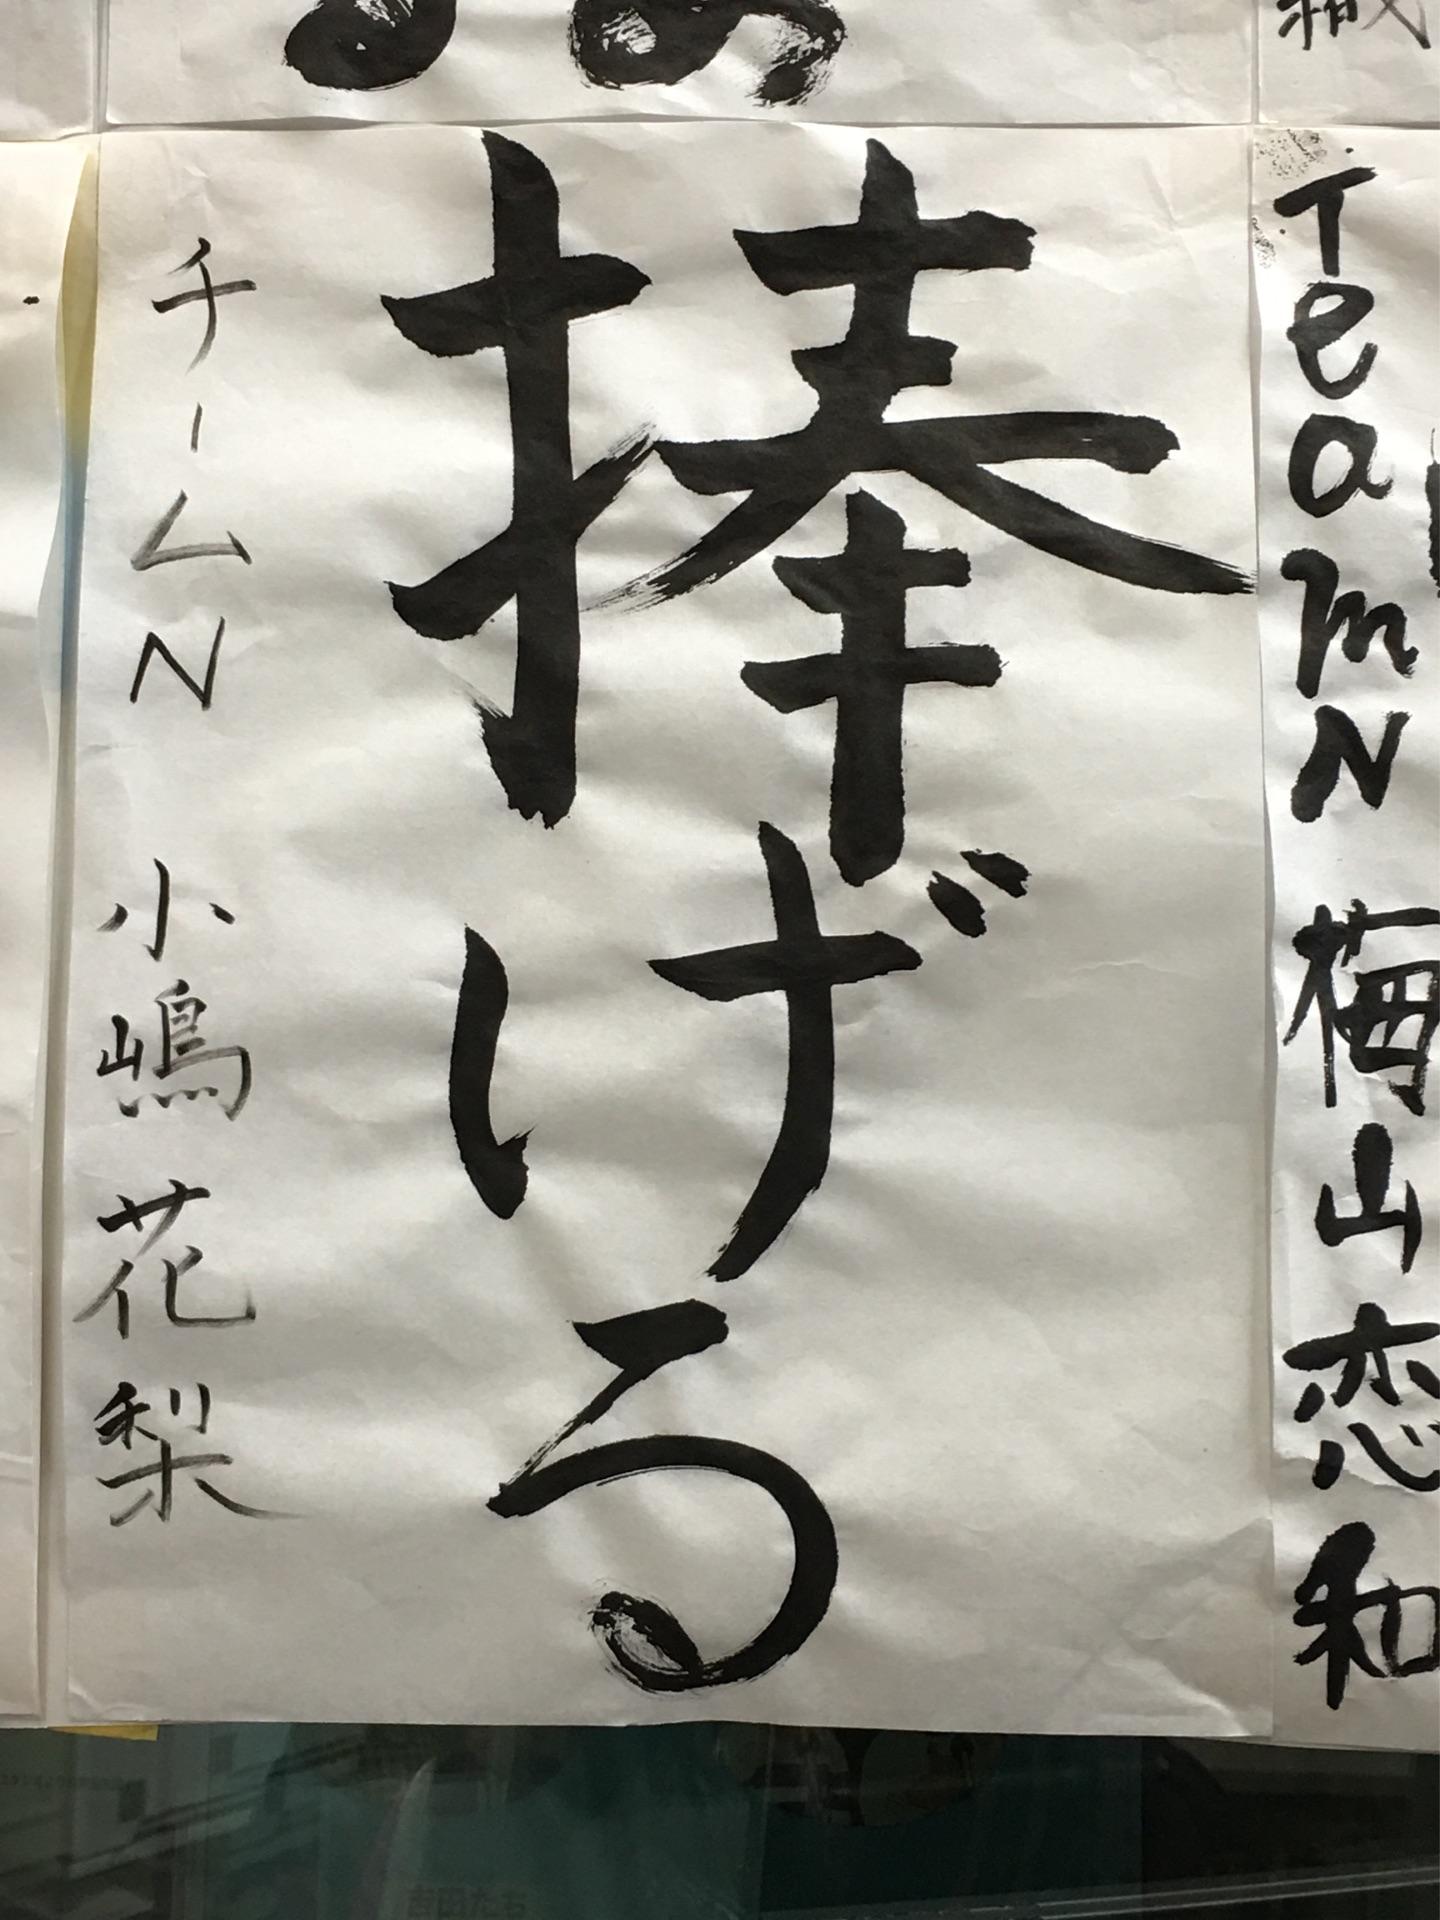 TeamN 梅山恋和
捧げる
チームN 小嶋花梨